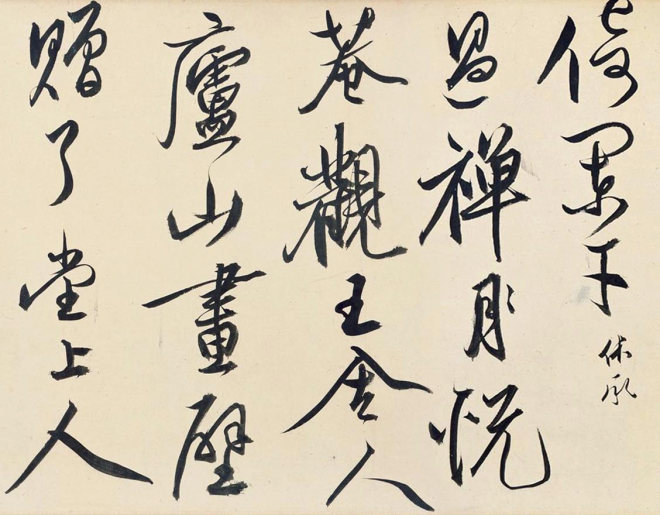 倚闌干
休承
過禪月悦
菴觀王舍人
廬山畫壁
贈了堂上人